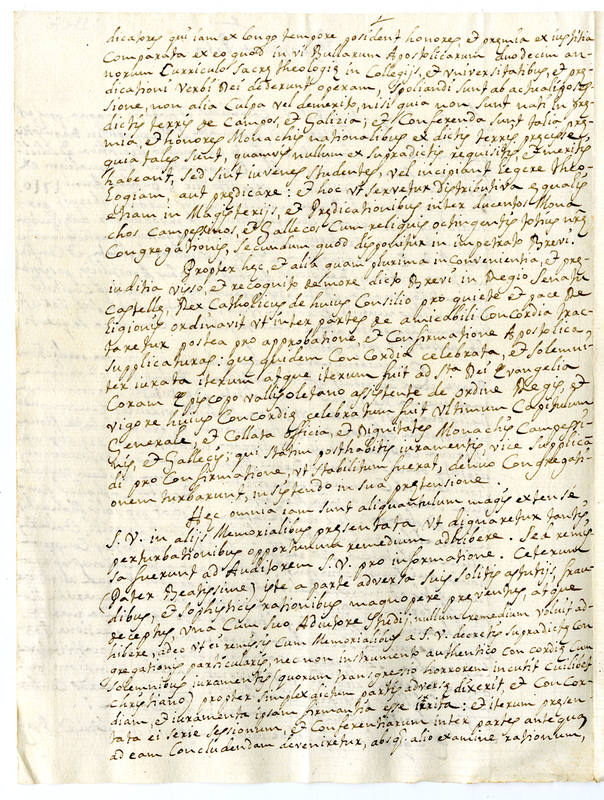 dicatores qui iam ex longo tempore posident honores et premia ex iustitia
Comparata ex eo quod in vi Bullarum Apostolicarum duodecim an-
norum Curriculo Sacrę Theologię in Collegijs, et vniversitatibus, et prę-
dicationi Verbi Dei dederunt operam, spoliandi sunt ab actuali posses-
sione, non alia Culpa vel demerito, nisi quia non sunt nati in prę-
dictis terris de Campos, et Galizia; et Conferenda sunt talia prę-
mia, et honores Monachis nationalibus ex dictis terris precise,
quia tales sient, quamvis nullum ex supradictis requisitis, et meritis
habeant, sed sint iuvenes studentes, vel incipiant Legere Theo-
Logiam, aut predicare: et hoc vt servetur distributiva equalis
etiam in Magisterijs, et Predicationibus inter ducentos Mona
chos Campesinos, et Gallecos Cum reliquis octingentis totius nrę
Congregationis, secundum quod disponitur in impetrato Brevi.
Propter hęc, et alia quam plurima inconvenientia, et pre-
iuditia visso, et recognito de more dicto Brevi in Regio Senatu
Castellę, Rex Catholicus de huius Consilio pro quiete et pace Re
Ligionis ordinavit vt inter partes de amicabili Concordia trac-
taretur postea pro approbatione, et Confirmatione Apostolica
supplicaturas: quę quidem Concordia celebrata, et solemni-
ter iurata iterum atque iterum fuit ad Sta Dei Evangelia
Coram Episcopo Vallisoletano assistente de ordine Regis, et
vigore huius Concordię celebratum fuit Vltimum Capitulum
Generale, et Collata officia, et Dignitates Monachis Campesi-
nis, et Gallecis; qui statim posthabitis iuramentis, vice supplica
di pro Confirmatione, vt stabilitum fuerat, denuo Congregati-
onem turbarunt, insistendo in sua pretensione.
Hęc omnia iam sunt aliquantulum magis extense
S. V. in alijs Memorialibus presentata vt dignaretur tantis
perturbationibus opportunum remedium adhibere. Sed remis
sa fuerunt ad Auditorem S. V. pro informatione. Ceterum
(Pater Beatissime) iste a parte adversa suis solitis astutijs, frau
dibus, et sophisticis rationibus magnopere preventus, atque
deceptus, vna Cum suo Adiutore nullum remedium voluit ad-
hibere, adeo vt ei remissis Cum Memorialibus a S. V. decretis supradictę Con
gregationis particularis, nec non instrumento authentico concordię Cum
solemnibus iuramentis (quorum transgressio horrorem incutit Cuilibet
Christiano) propter simplex dictum partis adversę dixerit, et Concor-
diam, et iuramenta ipsam firmantia esse irrita: et iterum presen
tata ei serie sessionum, et Conferentiarum inter partes antequam
ad eam Concludendam deveniretur, absq; alio examine rationum,